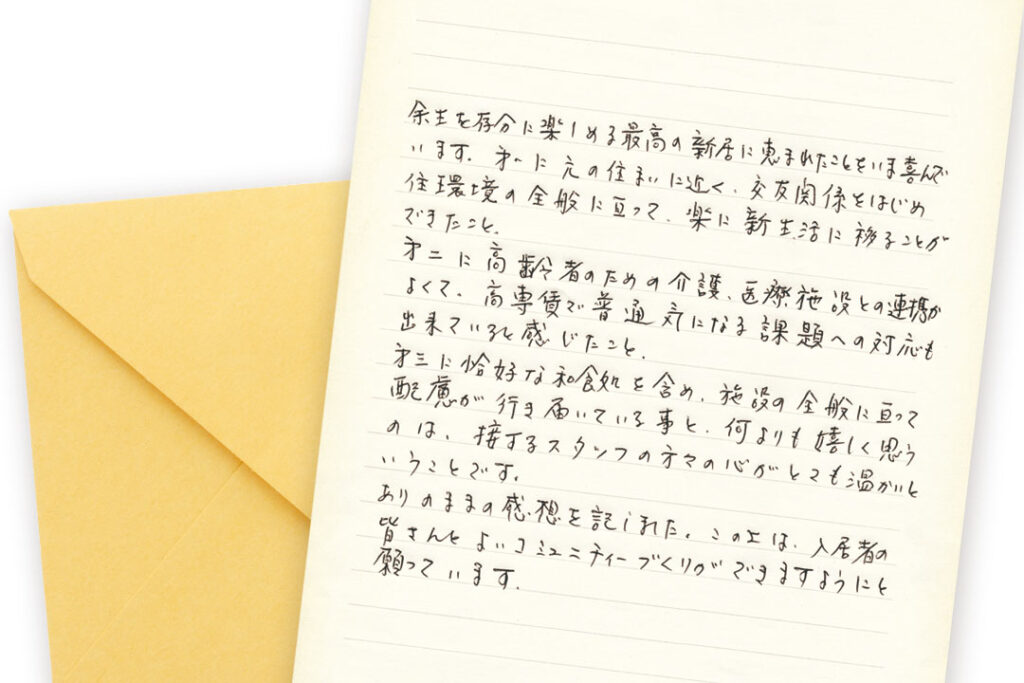 余生を存分に楽しめる最高の新居に恵まれたことをいま喜んで
います。才一に元の住まいに近く、交友関係をはじめ
住環境の全般に亘って、楽に新生活に移ることが
できたこと。
才二に高齢者のための介護、医療施設との連携が
よくて、高専賃で普通気になる課題への対応も
出来ていると感じたこと。
才三に恰好な和食処を含め、施設の全般に亘って
配慮が行き届いている事と、何よりも嬉しく思う
のは、接するスタッフの方々の心がとても温かいと
いうことです。
ありのままの感想を記しました。この上は、入居者の
皆さんとよいコミュニティーづくりができますようにと
願っています。